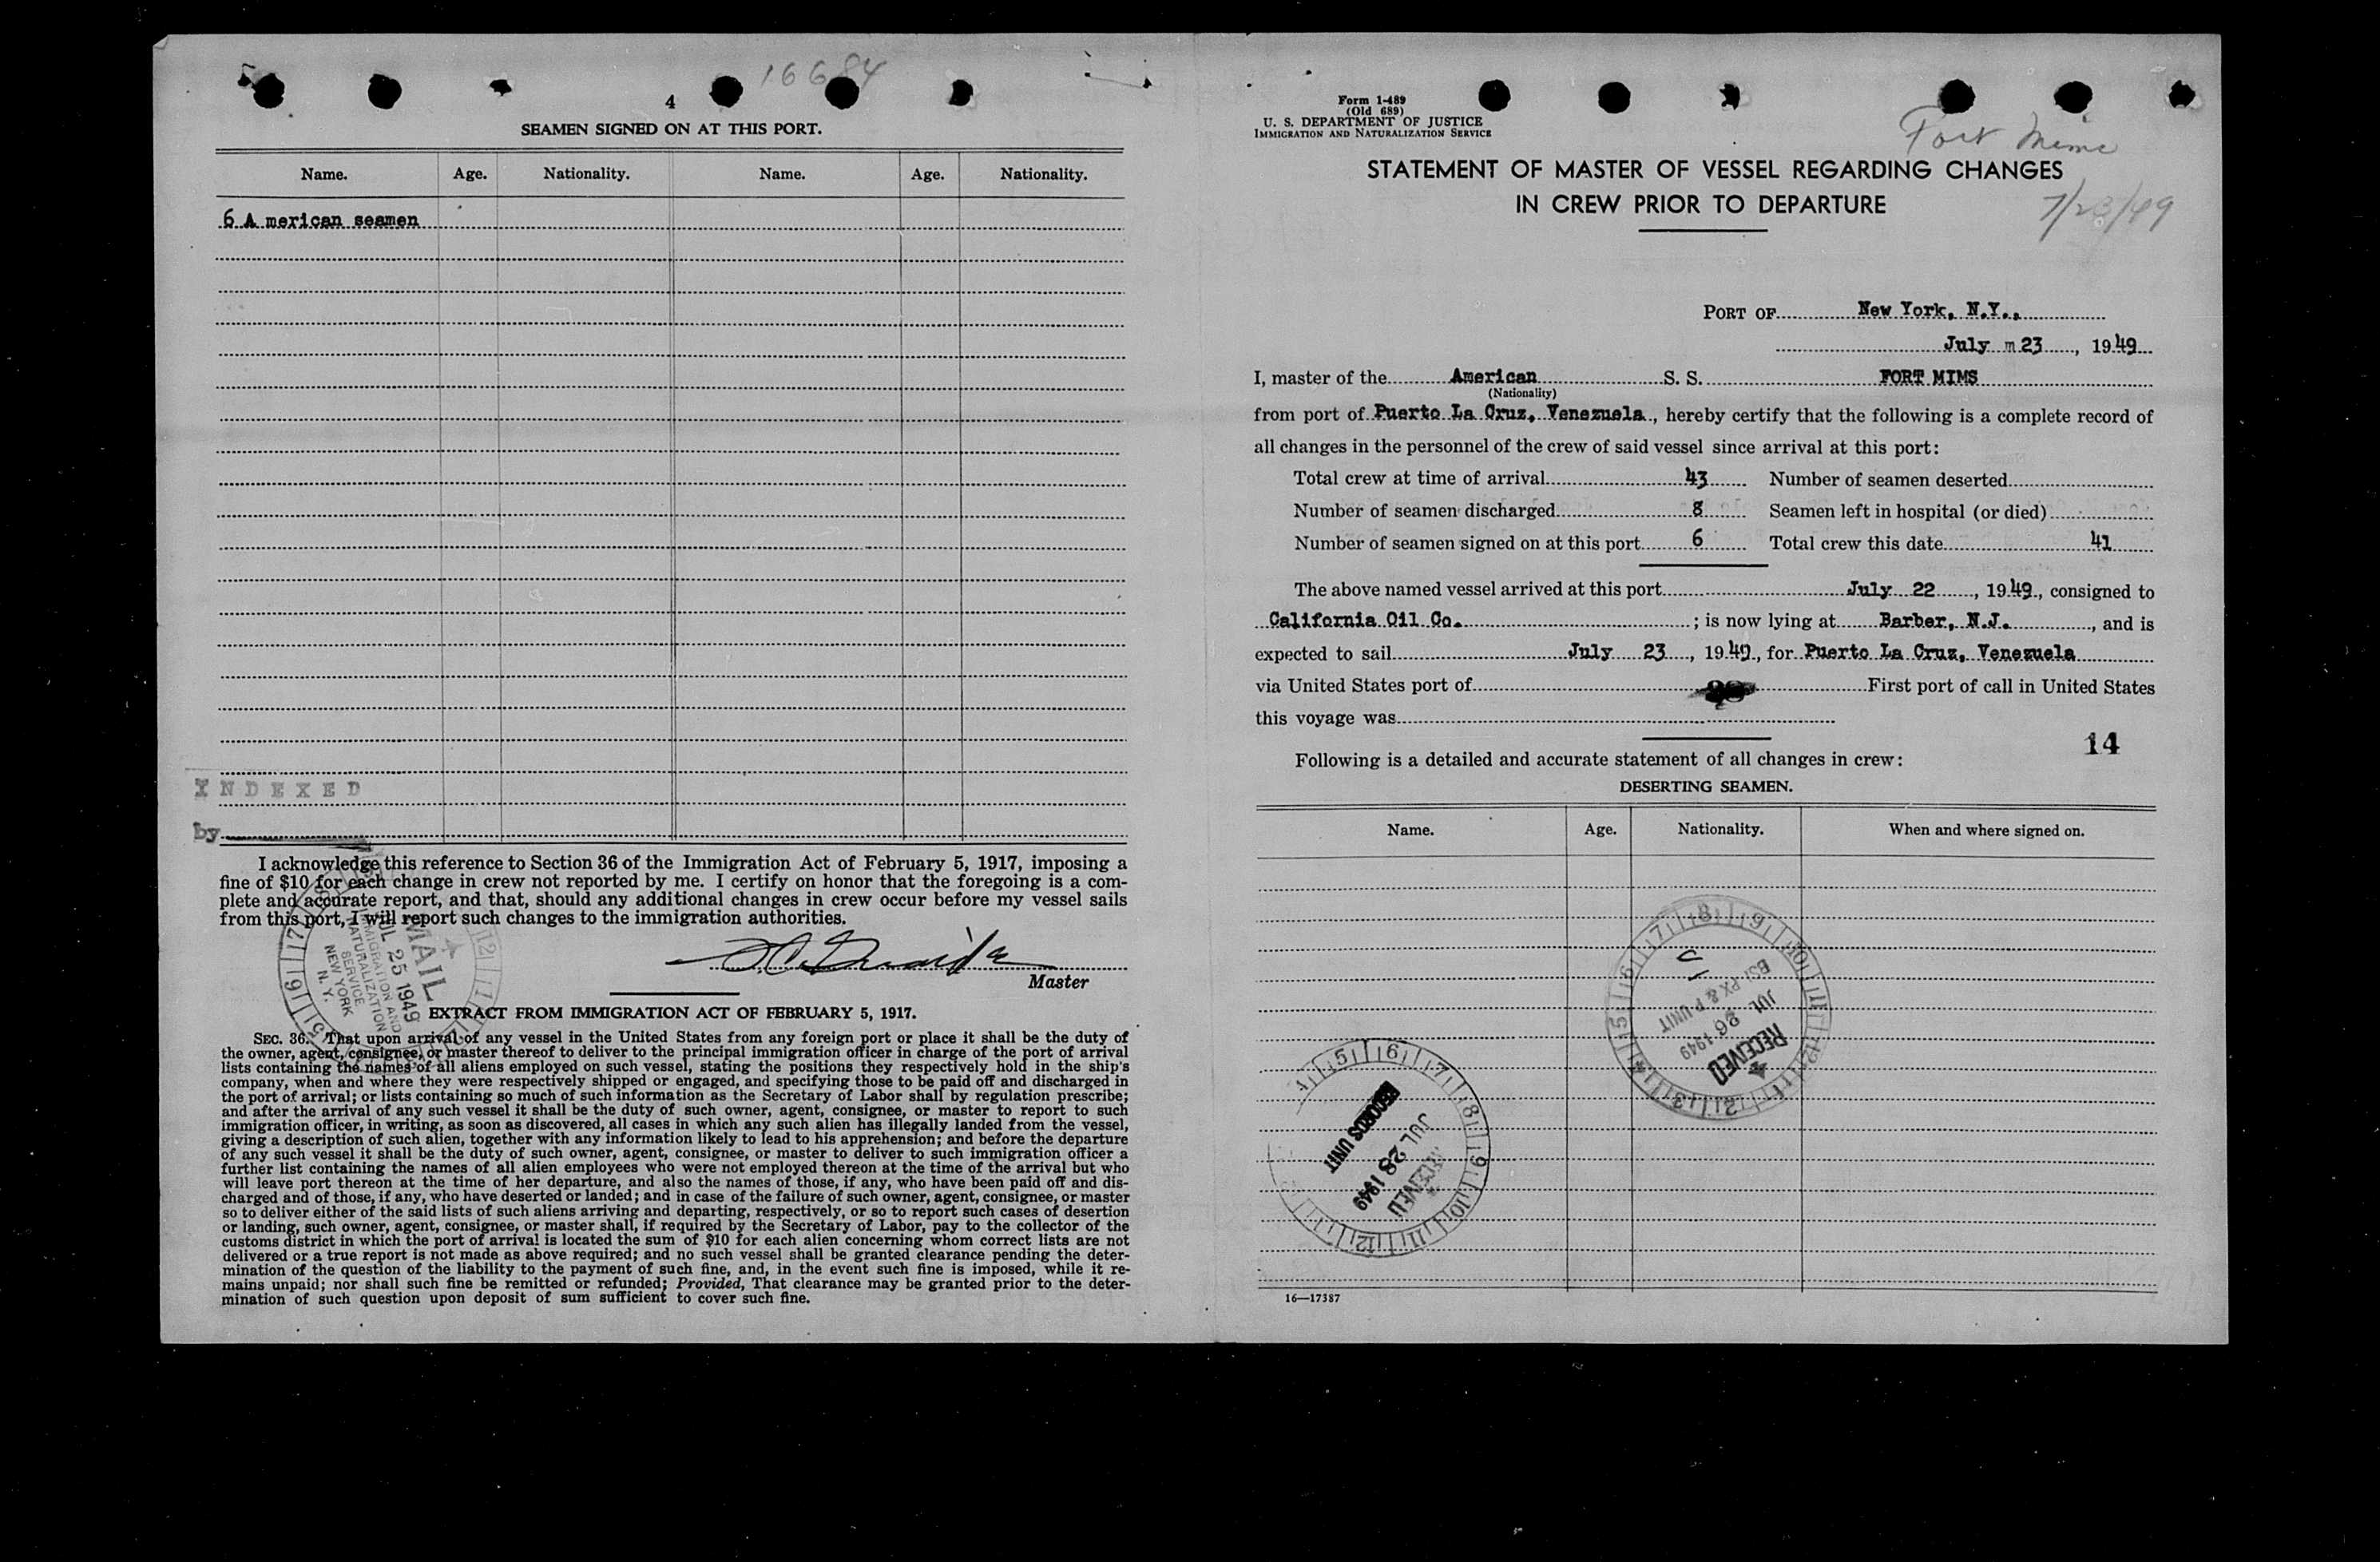 16684
4
SEAMEN SIGNED ON AT THIS PORT.
Name. Age. Nationality. Name. Age. Nationality.
6 A merican seamen
INDEXED
by
I acknowledge this reference to Section 36 of the Immigration Act of February 5, 1917, imposing a
fine of $10 for each change in crew not reported by me. I certify on honor that the foregoing is a com-
plete and accurate report, and that, should any additional changes in crew occur before my vessel sails
from this port, I will report such changes to the immigration authorities.
Master
MAIL
JUL 25 1949
IMMIGRATION AND
NATURALIZATION
SERVICE
NEW YORK
N. Y.
EXTRACT FROM IMMIGRATION ACT OF FEBRUARY 5, 1917.
SEC. 36. That upon arrival of any vessel in the United States from any foreign port or place it shall be the duty of
the owner, agent, consignee, or master thereof to deliver to the principal immigration officer in charge of the port of arrival
lists containing the names of all aliens employed on such vessel, stating the positions they respectively hold in the ship's
company, when and where they were respectively shipped or engaged, and specifying those to be paid off and discharged in
the port of arrival; or lists containing so much of such information as the Secretary of Labor shall by regulation prescribe;
and after the arrival of any such vessel it shall be the duty of such owner, agent, consignee, or master to report to such
immigration officer, in writing, as soon as discovered, all cases in which any such alien has illegally landed from the vessel,
giving a description of such alien, together with any information likely to lead to his apprehension; and before the departure
of any such vessel it shall be the duty of such owner, agent, consignee, or master to deliver to such immigration officer a
further list containing the names of all alien employees who were not employed thereon at the time of the arrival but who
will leave port thereon at the time of her departure, and also the names of those, if any, who have been paid off and dis-
charged and of those, if any, who have deserted or landed; and in case of the failure of such owner, agent, consignee, or master
so to deliver either of the said lists of such aliens arriving and departing, respectively, or so to report such cases of desertion
or landing, such owner, agent, consignee, or master shall, if required by the Secretary of Labor, pay to the collector of the
customs district in which the port of arrival is located the sum of $10 for each alien concerning whom correct lists are not
delivered or a true report is not made as above required; and no such vessel shall be granted clearance pending the deter-
mination of the question of the liability to the payment of such fine, and, in the event such fine is imposed, while it re-
mains unpaid; nor shall such fine be remitted or refunded; Provided, That clearance may be granted prior to the deter-
mination of such question upon deposit of sum sufficient to cover such fine.
Form I-489
(Old 689)
U. S. DEPARTMENT OF JUSTICE
IMMIGRATION AND NATURALIZATION SERVICE
Fort Mims
STATEMENT OF MASTER OF VESSEL REGARDING CHANGES
IN CREW PRIOR TO DEPARTURE
7/23/49
PORT OF New York, N.Y.,
July m 23, 1949
I, master of the American S. S. FORT MIMS
(Nationality)
from port of Puerto La Cruz, Venezuela, hereby certify that the following is a complete record of
all changes in the personnel of the crew of said vessel since arrival at this port:
Total crew at time of arrival 43 Number of seamen deserted
Number of seamen discharged 8 Seamen left in hospital (or died)
Number of seamen signed on at this port 6 Total crew this date 41
The above named vessel arrived at this port July 22, 1949, consigned to
California Oil Co. ; is now lying at Barber, N.J. , and is
expected to sail July 23, 1949, for Puerto La Cruz, Venezuela
via United States port of First port of call in United States
this voyage was
14
Following is a detailed and accurate statement of all changes in crew:
DESERTING SEAMEN.
Name. Age. Nationality. When and where signed on.
RECEIVED
JUL 26 1949
RECEIVED
JUL 28 1949
RECORDS UNIT
16—17387